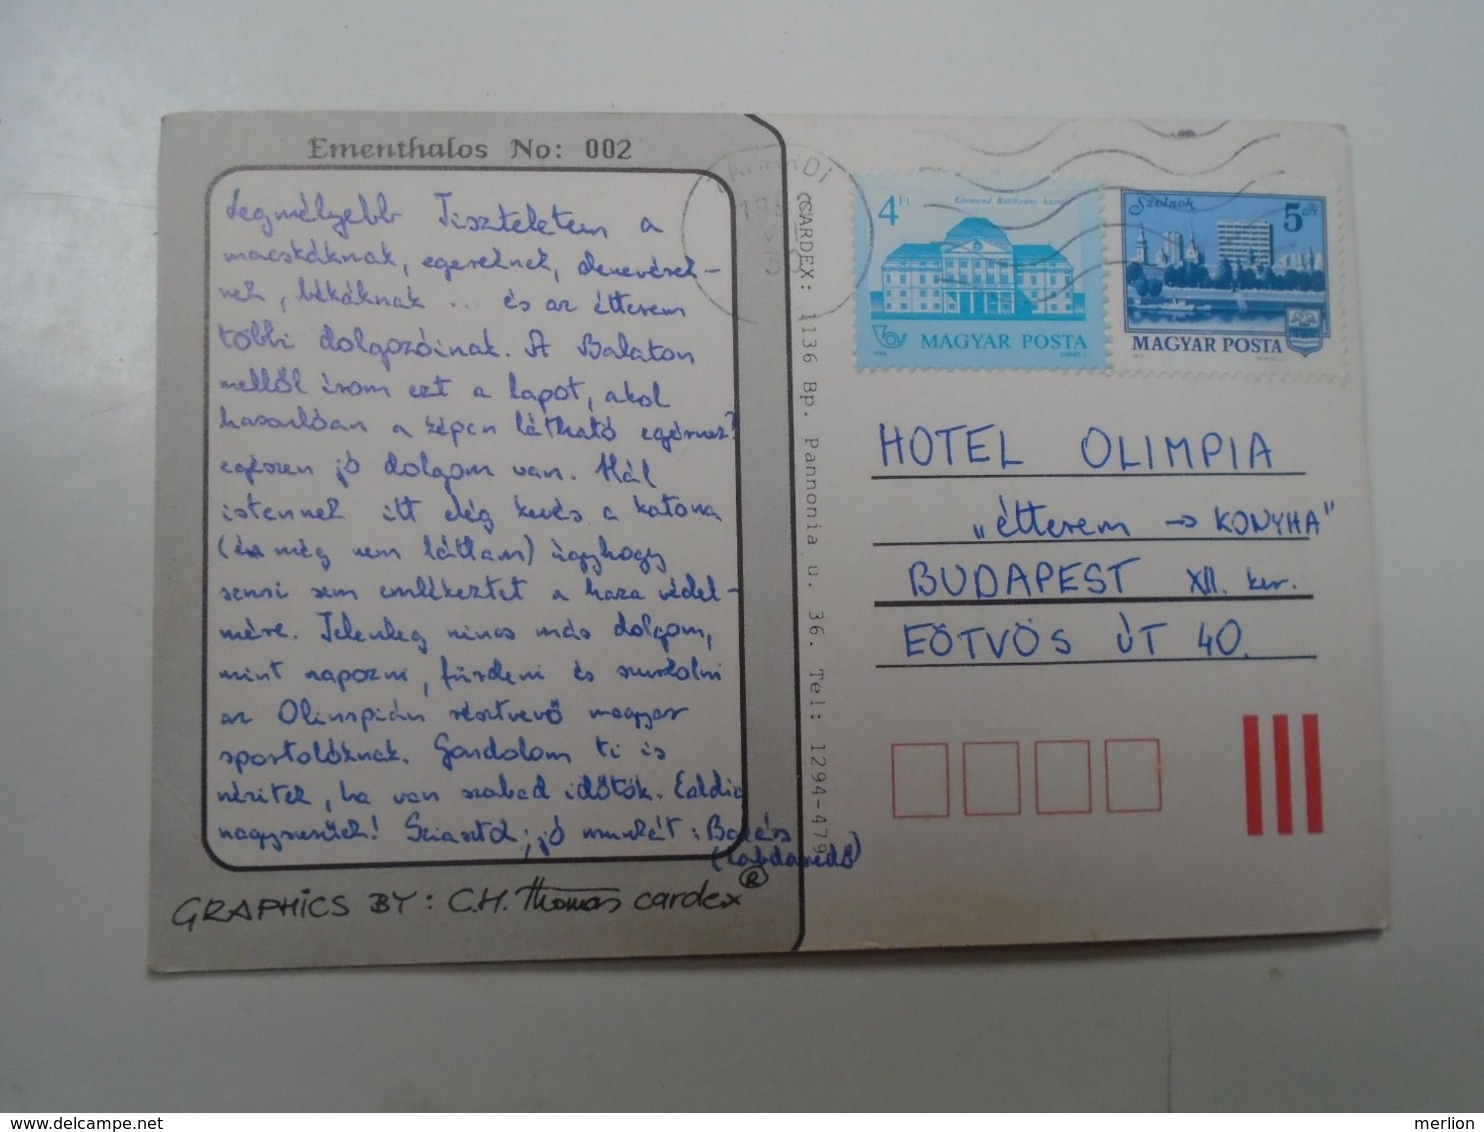 Ementhalos No: 002
Legmélyebb Tiszteletem a
macskáknak, egereknek, denevérek-
nek, békáknak ... és az étterem
többi dolgozóinak. A Balaton
mellől írom ezt a lapot, ahol
hasonlóan a képen látható egérhez?
egészen jó dolgom van. Hál
istennek itt elég kevés a katona
(én még nem láttam) úgyhogy
senki sem emlékeztet a haza védel-
mére. Jelenleg nincs más dolgom,
mint napozni, fürdeni és szurkolni
az Olimpián résztvevő magyar
sportolóknak. Gondolom ti is
nézitek, ha van szabad időtök. Eddig
nagyszerűek! Sziasztok, jó munkát: Balázs
(labdaszedő)
GRAPHICS BY: C.H. Thomas cardex ®
CARDEX: 1136 Bp. Pannonia u. 36. Tel: 1294-479
ZAMÁRDI
4 Ft
Körmend, Batthyány-kastély
MAGYAR POSTA
1986
Szolnok
5 Ft
MAGYAR POSTA
HOTEL OLIMPIA
„étterem → KONYHA"
BUDAPEST XII. ker.
EÖTVÖS ÚT 40.
merlion